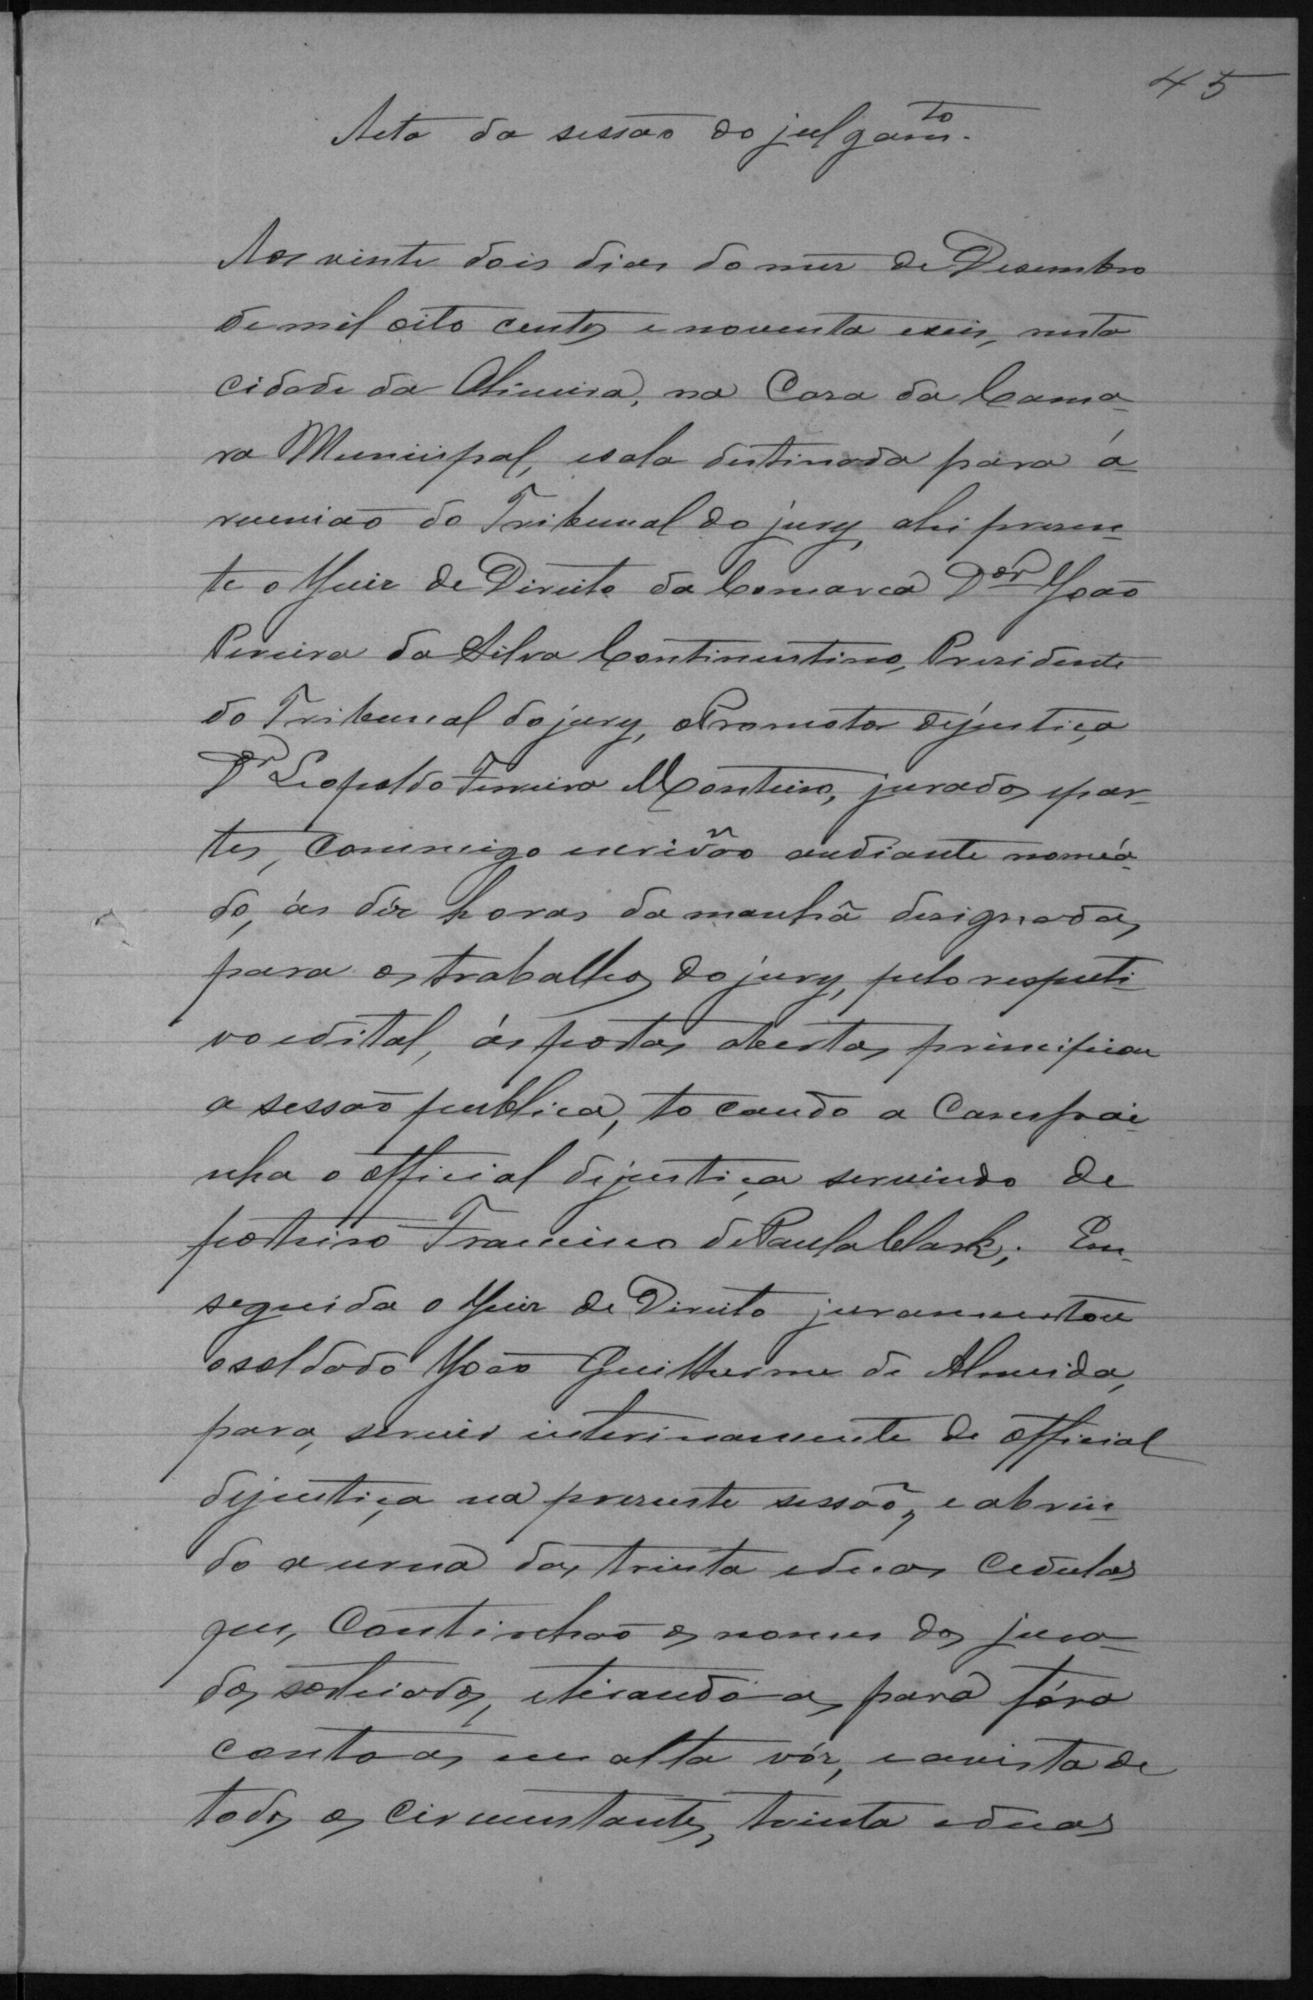 45
Acta da sessão do julgamto.
Aos vinte dois dias do mez de Desembro
de mil oito centos e noventa e seis, nesta
cidade da Oliveira, na Casa da Cama-
ra Municipal, e sala destinada para a
reunião do Tribunal do jury, ahi presen-
te o Juiz de Direito da Comarca Dor João
Pereira da Silva Continentino, Presidente
do Tribunal do jury, o Promotor de justiça
Dr Leopoldo Ferreira Monteiro, jurados e par-
tes, commigo escrivão audiante nomea-
do, ás déz horas da manhã designadas
para os trabalhos do jury, pelo respecti-
vo edital, ás portas abertas principiou
a sessão publica, tocando a campai-
nha o official de justiça servindo de
porteiro Francisco de Paula Clark; Em
seguida o Juiz de Direito juramentou
o soldado João Guilherme de Almeida,
para, servir interinamente de official
de justiça na presente sessão, e abrin-
do a urna das trinta e duas cedulas
que, continhão os nomes dos jura-
dos sorteados, e tirando as para fóra
contoas em alta vóz, e a vista de
todos os circunstantes, trinta e duas